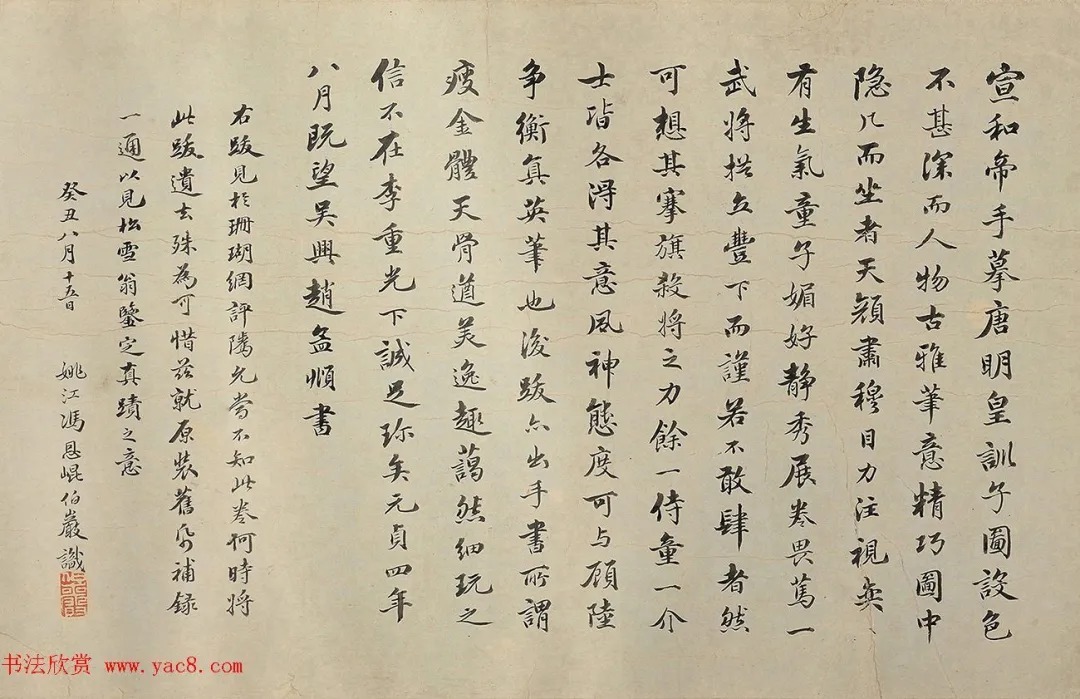 宣和帝手摹唐明皇訓子圖設色
不甚深而人物古雅筆意精巧圖中
隐几而坐者天顔肅穆目力注視奕
有生氣童子媚好静秀展卷畏篤一
武将拱立豐下而謹若不敢肆者然
可想其搴旗殺将之力餘一侍童一介
士皆各得其意風神態度可与顧陸
争衡真英筆也後跋亦出手書所謂
瘦金體天骨遒美逸趣藹然細玩之
信不在李重光下誠足珎矣元貞四年
八月既望吴興趙孟順書
右跋見於珊瑚網評隲允當不知此卷何時将
此跋遺去殊為可惜茲就原装舊帋補録
一通以見松雪翁鑒定真蹟之意
癸丑八月十五日 姚江馮恩崐伯巖識
书法欣赏 www.yac8.com